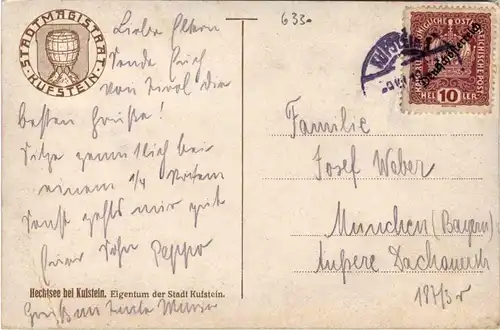 STADTMAGISTRAT KUFSTEIN
633
KAISERLICHE KÖNIGLICHE ÖSTERREICHISCHE POST
Deutschösterreich
HELLER 10
Liebe Eltern
Sende Euch
von Tirol die
besten Grüße!
Sitze gemütlich bei
einem 1/4 Roten
Sonst gehts mir gut
Euer Sohn Peppo
Familie
Josef Weber
München (Bayern)
Äussere Dachauerstr
187/3 r
Hechtsee bei Kufstein. Eigentum der Stadt Kufstein.
Gruß an Tante Marie